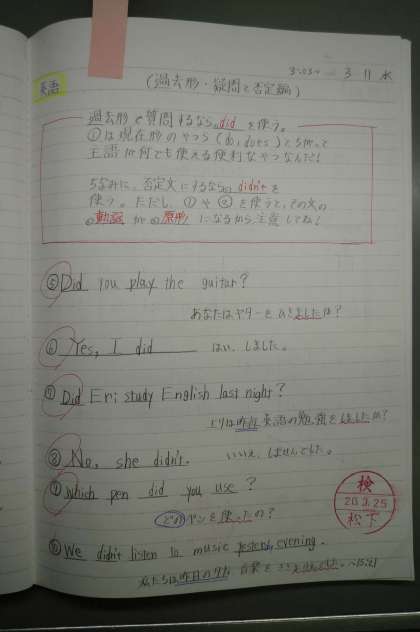 英語
3 11 水
(過去形・疑問と否定編)
過去形で質問するなら①did を使う。
①は現在形のやつら(do, does)とちがって
主語が何でも使える便利なやつなんだ!
ちなみに、否定文にするなら②didn'tを
使う。ただし、①や②を使うと、その文の
③動詞が④原形になるから注意してね!
⑤Did you play the guitar?
あなたはギターをひきましたか?
⑥Yes, I did
はい、しました。
⑦Did Eri study English last night?
エリは昨晩英語の勉強をしましたか?
⑧No, she didn't.
いいえ、しませんでした。
⑨Which pen did you use ?
どのペンを使ったの?
検
20.3.25
松下
⑩We didn't listen to music yesterday evening.
私たちは昨日の夕方、音楽を